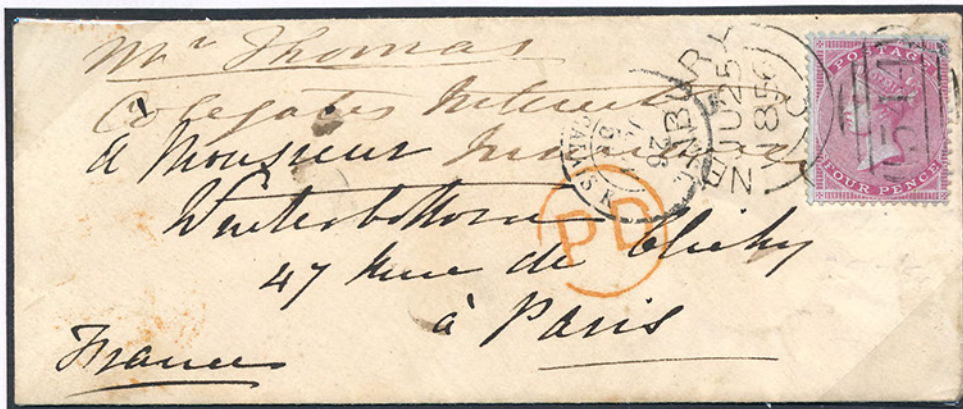 Mr Thomas
Colegates
à Monsieur
Winterbottom
47 Rue de Clichy
à Paris
France
PD
NEWBURY
JU 25
1856
CALAIS
26
POSTAGE
FOUR PENCE